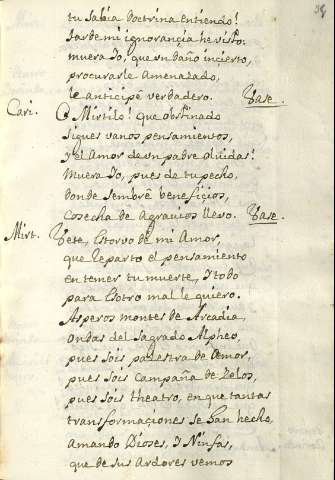 tu Sabia Doctrina Entiendo!
tarde mi ignorançia he visto.
muera Io, que un daño incierto,
procurarle Amenazado,
le anticipè verdadero. Vase.
Cari. O Mirtilo! que obstinado
Sigues vanos pensamientos,
y el Amor de un padre olvidas!
Muera Io, pues de tu pecho,
donde Sembrè beneficios,
Cosecha de Agravios llevo. Vase.
Mirt. Vete, Estorvo de mi Amor,
que Reparto el pensamiento
en temer tu muerte, I todo
para Esotro mal le quiero.
Asperos montes de Arcadia,
ondas del Sagrado Alpheo,
pues sois palestra de Amor,
pues sois Campaña de Zelos,
pues sois theatro, en que tantas
transformaçiones se han hecho,
Amando Dioses, I Ninfas,
que de sus Ardores vemos